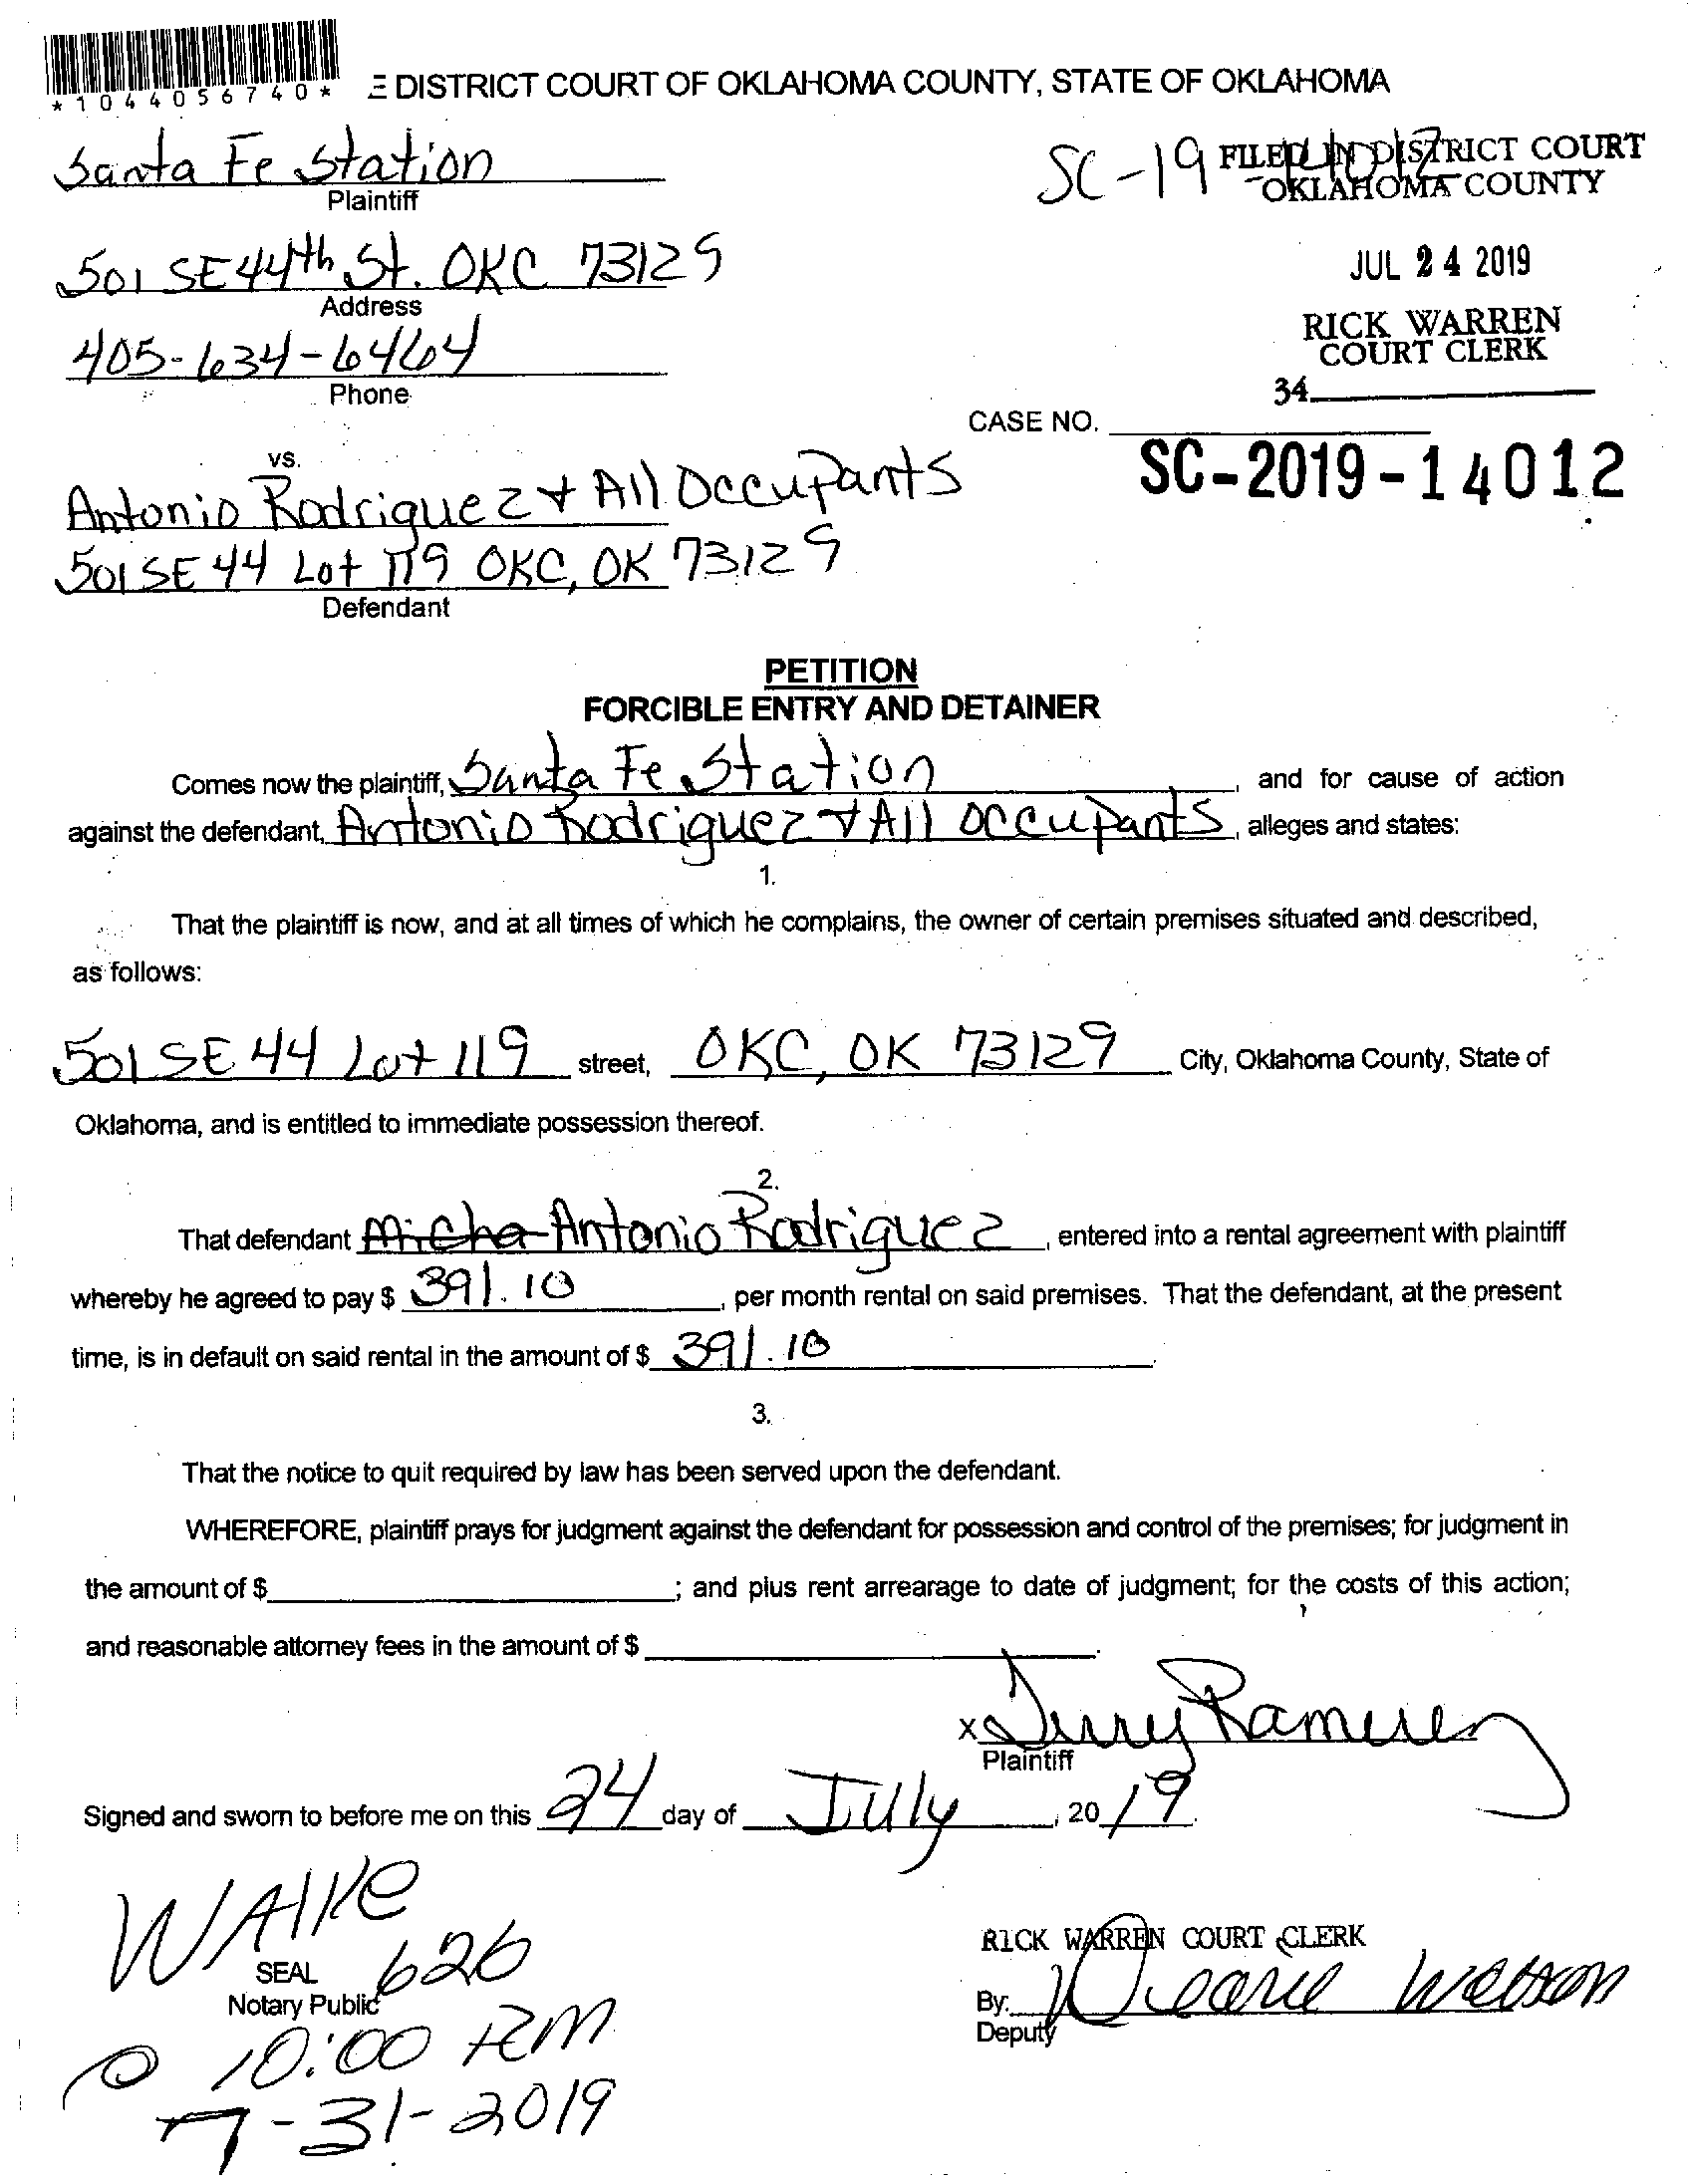 *1044056740*
E DISTRICT COURT OF OKLAHOMA COUNTY, STATE OF OKLAHOMA
Santa Fe Station
Plaintiff
SC-19-14012
FILED IN DISTRICT COURT
OKLAHOMA COUNTY
501 SE 44th St. OKC 73129
Address
JUL 24 2019
405-634-6464
Phone
RICK WARREN
COURT CLERK
34
CASE NO.
SC-2019-14012
vs.
Antonio Rodriguez + All Occupants
501 SE 44 Lot 119 OKC, OK 73129
Defendant
PETITION
FORCIBLE ENTRY AND DETAINER
Comes now the plaintiff, Santa Fe Station, and for cause of action
against the defendant, Antonio Rodriguez + All occupants, alleges and states:
1.
That the plaintiff is now, and at all times of which he complains, the owner of certain premises situated and described,
as follows:
501 SE 44 Lot 119 street, OKC, OK 73129 City, Oklahoma County, State of
Oklahoma, and is entitled to immediate possession thereof.
2.
That defendant Micha Antonio Rodriguez, entered into a rental agreement with plaintiff
whereby he agreed to pay $ 391.10, per month rental on said premises. That the defendant, at the present
time, is in default on said rental in the amount of $ 391.10.
3.
That the notice to quit required by law has been served upon the defendant.
WHEREFORE, plaintiff prays for judgment against the defendant for possession and control of the premises; for judgment in
the amount of $ ; and plus rent arrearage to date of judgment; for the costs of this action;
and reasonable attorney fees in the amount of $ .
x Ramirez
Plaintiff
Signed and sworn to before me on this 24 day of July, 2019.
WAlke
SEAL 626
Notary Public
@ 10:00 Am
7-31-2019
RICK WARREN COURT CLERK
By: Watson
Deputy